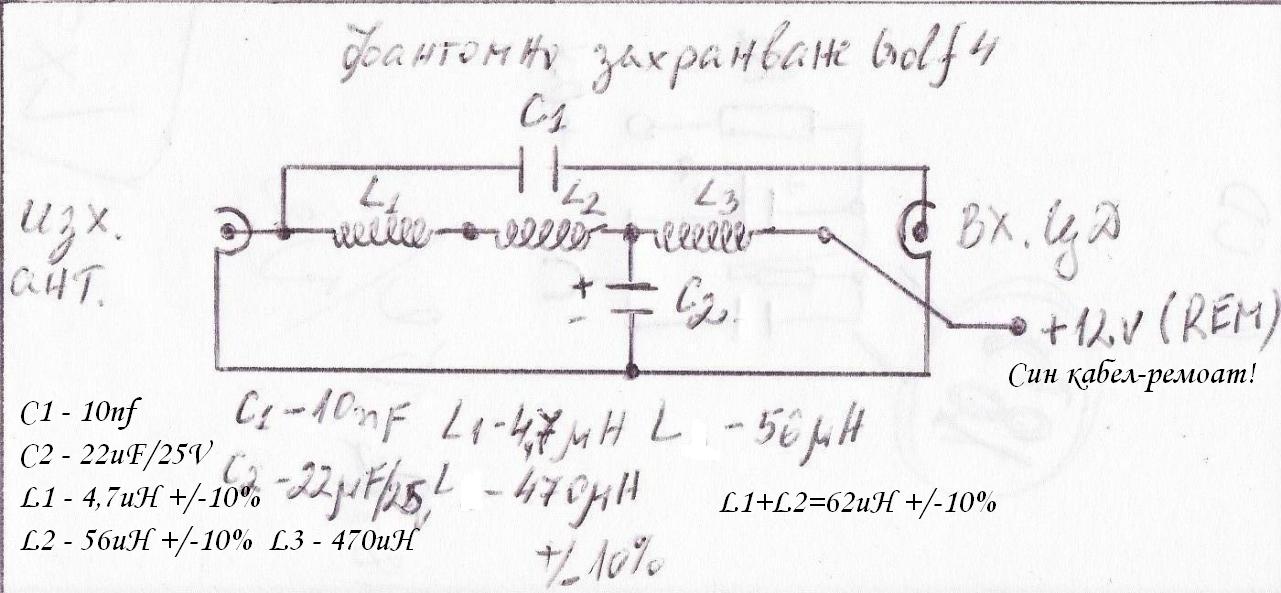 Фантомно захранване Golf 4
C1
L1 L2 L3
изх. ант.
ВХ. ЦД
+ -
C2
+12V (REM)
Син кабел-ремоат!
C1 - 10nf
C2 - 22uF/25V
L1 - 4,7uH +/-10%
L2 - 56uH +/-10% L3 - 470uH
C1 - 10nF L1 - 4,7μH L - 56μH
C2 - 22μF/25V L - 470μH
+/-10%
L1+L2=62uH +/-10%